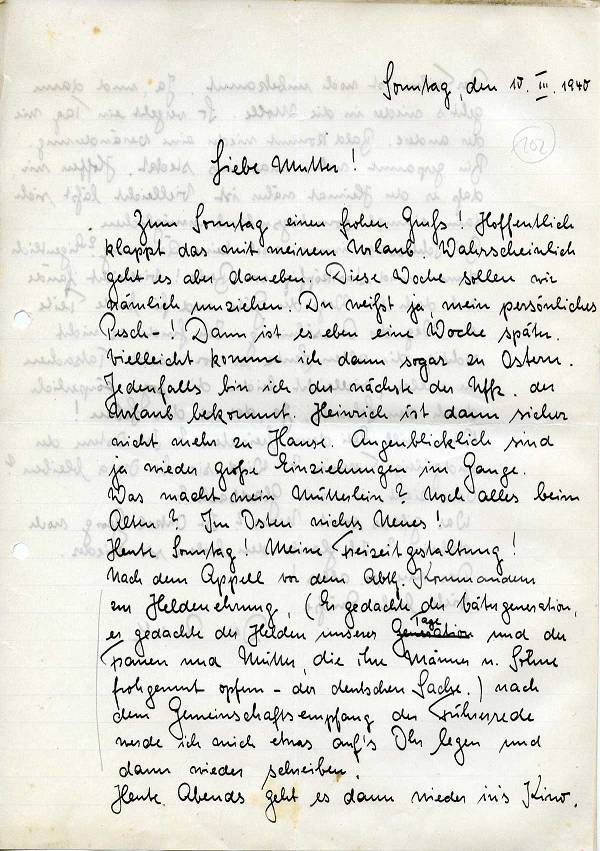 Sonntag, den 10. III. 1940
102
Liebe Mutter!
Zum Sonntag einen frohen Gruß! Hoffentlich
klappt das mit meinem Urlaub. Wahrscheinlich
geht es aber daneben. Diese Woche sollen wir
nämlich umziehen. Du weißt ja, mein persönliches
Pech-! Dann ist es eben eine Woche später.
Vielleicht komme ich dann sogar zu Ostern.
Jedenfalls bin ich der nächste der Uffz. der
Urlaub bekommt. Heinrich ist dann sicher
nicht mehr zu Hause. Augenblicklich sind
ja wieder große Einziehungen im Gange.
Was macht mein Mütterlein? Noch alles beim
Alten? Im Osten nichts Neues!
Heute Sonntag! Meine Freizeitgestaltung!
Nach dem Appell vor dem Abtlg. Kommandeur
zur Heldenehrung, (Er gedachte der Vätergeneration,
er gedachte der Helden unserer Generation Tage und der
Frauen und Mütter, die ihre Männer u. Söhne
frohgemut opfern - der deutschen Sache.) nach
dem Gemeinschaftsempfang der Führerrede
werde ich mich etwas auf's Ohr legen und
dann wieder schreiben.
Heute Abends geht es dann wieder in's Kino.